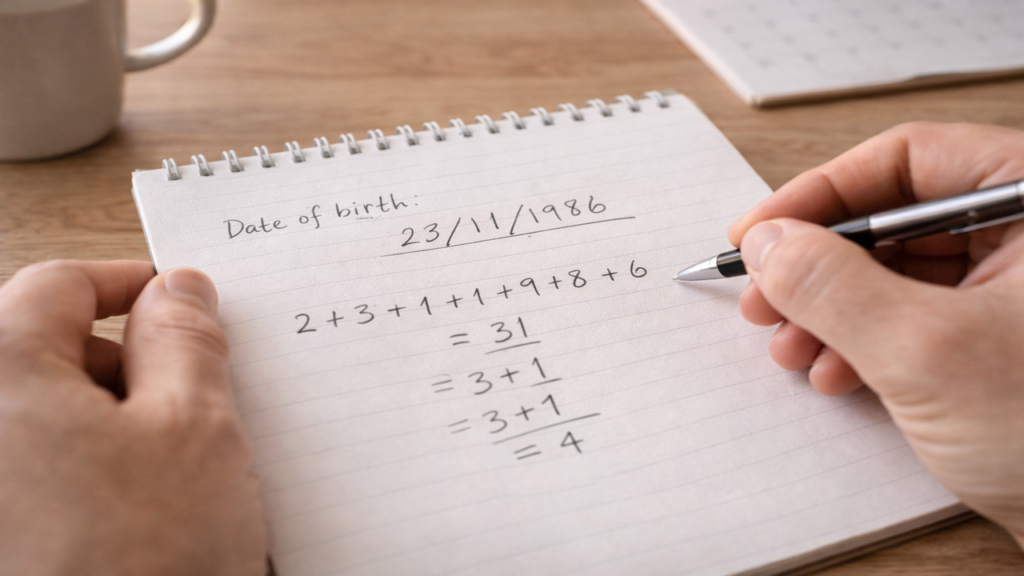 Date of birth:
23/11/1986
2+3+1+1+9+8+6
= 31
= 3+1
= 3+1
= 4